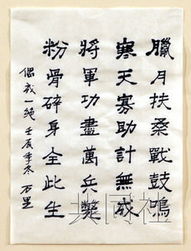 臘月扶桑戰鼓鳴
寒天寡助計無成
將軍功盡萬兵斃
粉骨碎身全此生
偶成一絕 壬辰季冬 石里